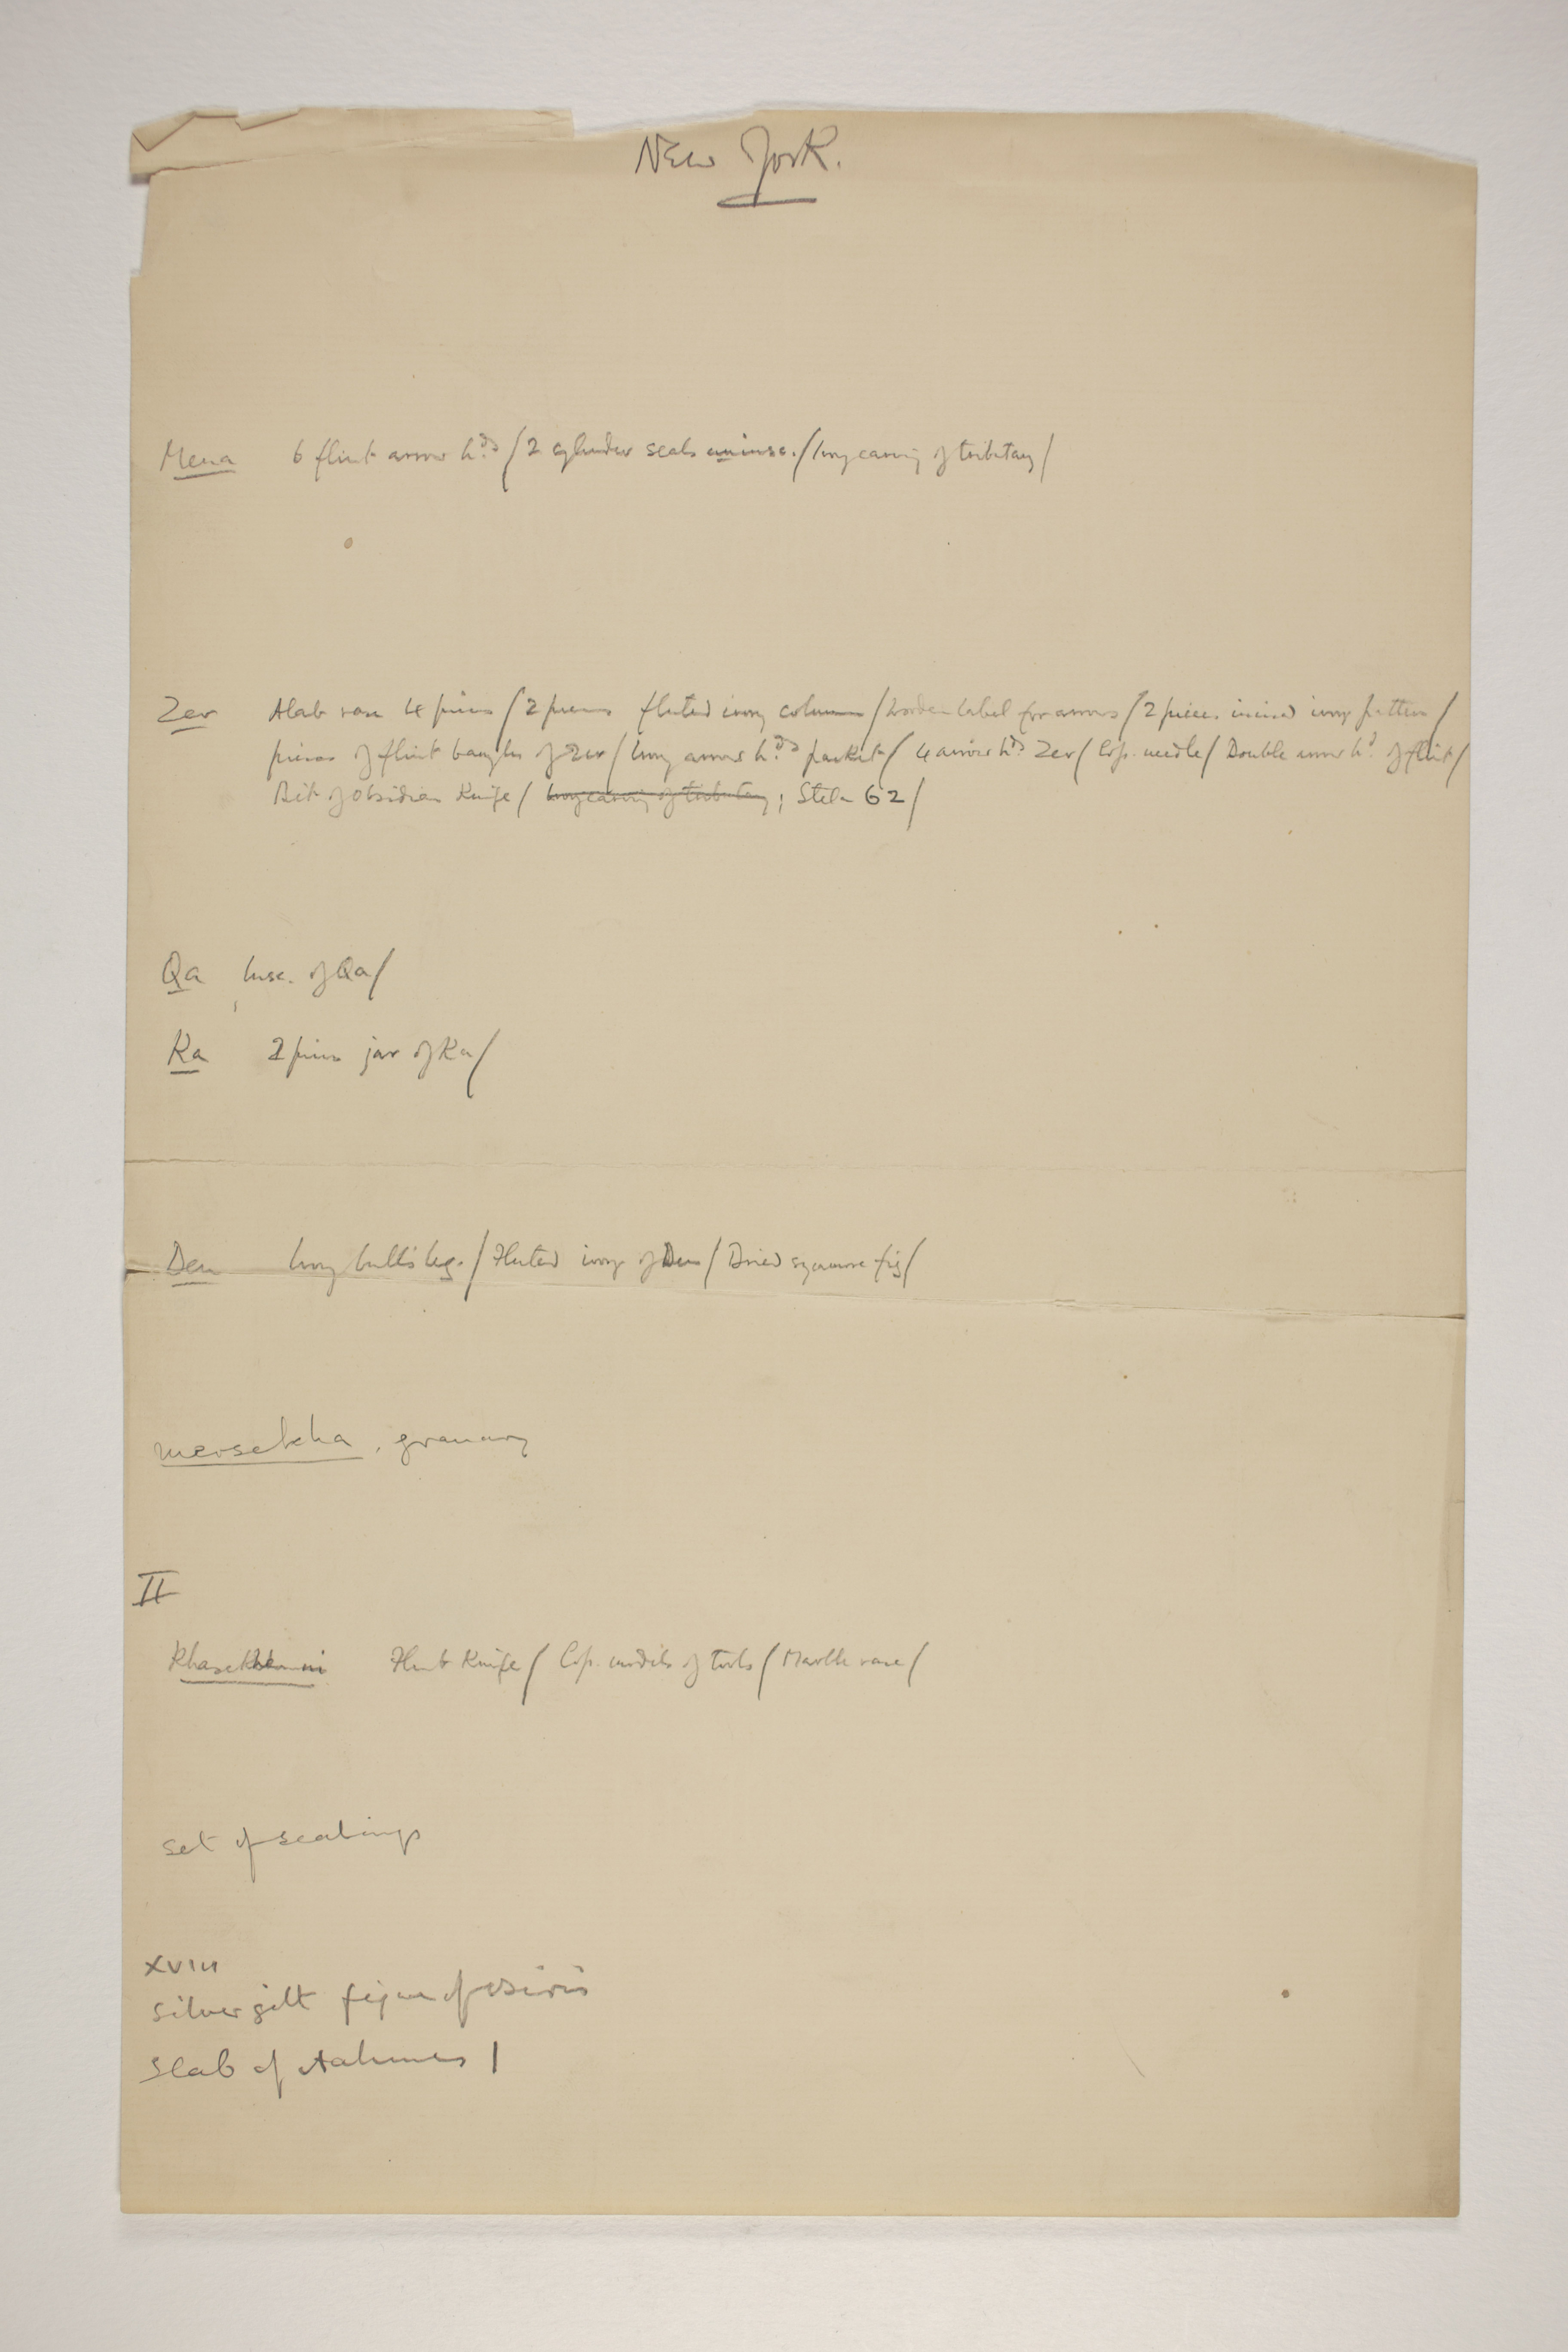 New York.
Mena 6 flint arrow hds / 2 cylinder seals uninsc. / Ivory carving of tributary /
Zer Alab vase 4 pieces / 2 pieces fluted ivory column / Wooden label for arrows / 2 pieces incised ivory pattern /
pieces of flint bangles of Zer / Ivory arrow hds packet / 4 arrow hds Zer / Cop. needle / Double arrow hd of flint /
Bit of obsidian Knife / Ivory carving of tributary ; Stela 62 /
Qa Insc. of Qa /
Ka 2 pieces jar of Ka /
Den Ivory bull's leg. / Fluted ivory of Den / Dried sycamore fig /
Mersekha, granary
II
Khasekhemui Flint Knife / Cop. models of tools / Marble vase /
Set of sealings
XVIII
Silver gilt figure of Osiris
Slab of Aahmes I